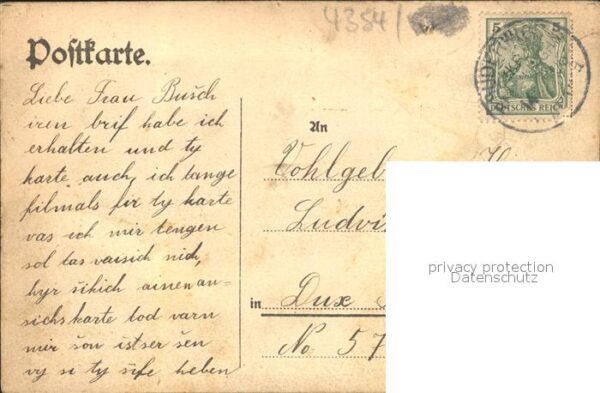 4384/
Postkarte.
5
DEUTSCHES REICH
Liebe Frau Busch
iren brif habe ich
erhalten und ty
karte auch, ich lange
filmals fir ty karte
vas ich mir tengen
sol tas vaisich nich,
hyr šikich ainen an-
sichskarte tod varn
mir šon istser šen
vy si ty šife heben
An
Vohlgeb
Ludvi
in Dux
No 57
privacy protection
Datenschutz